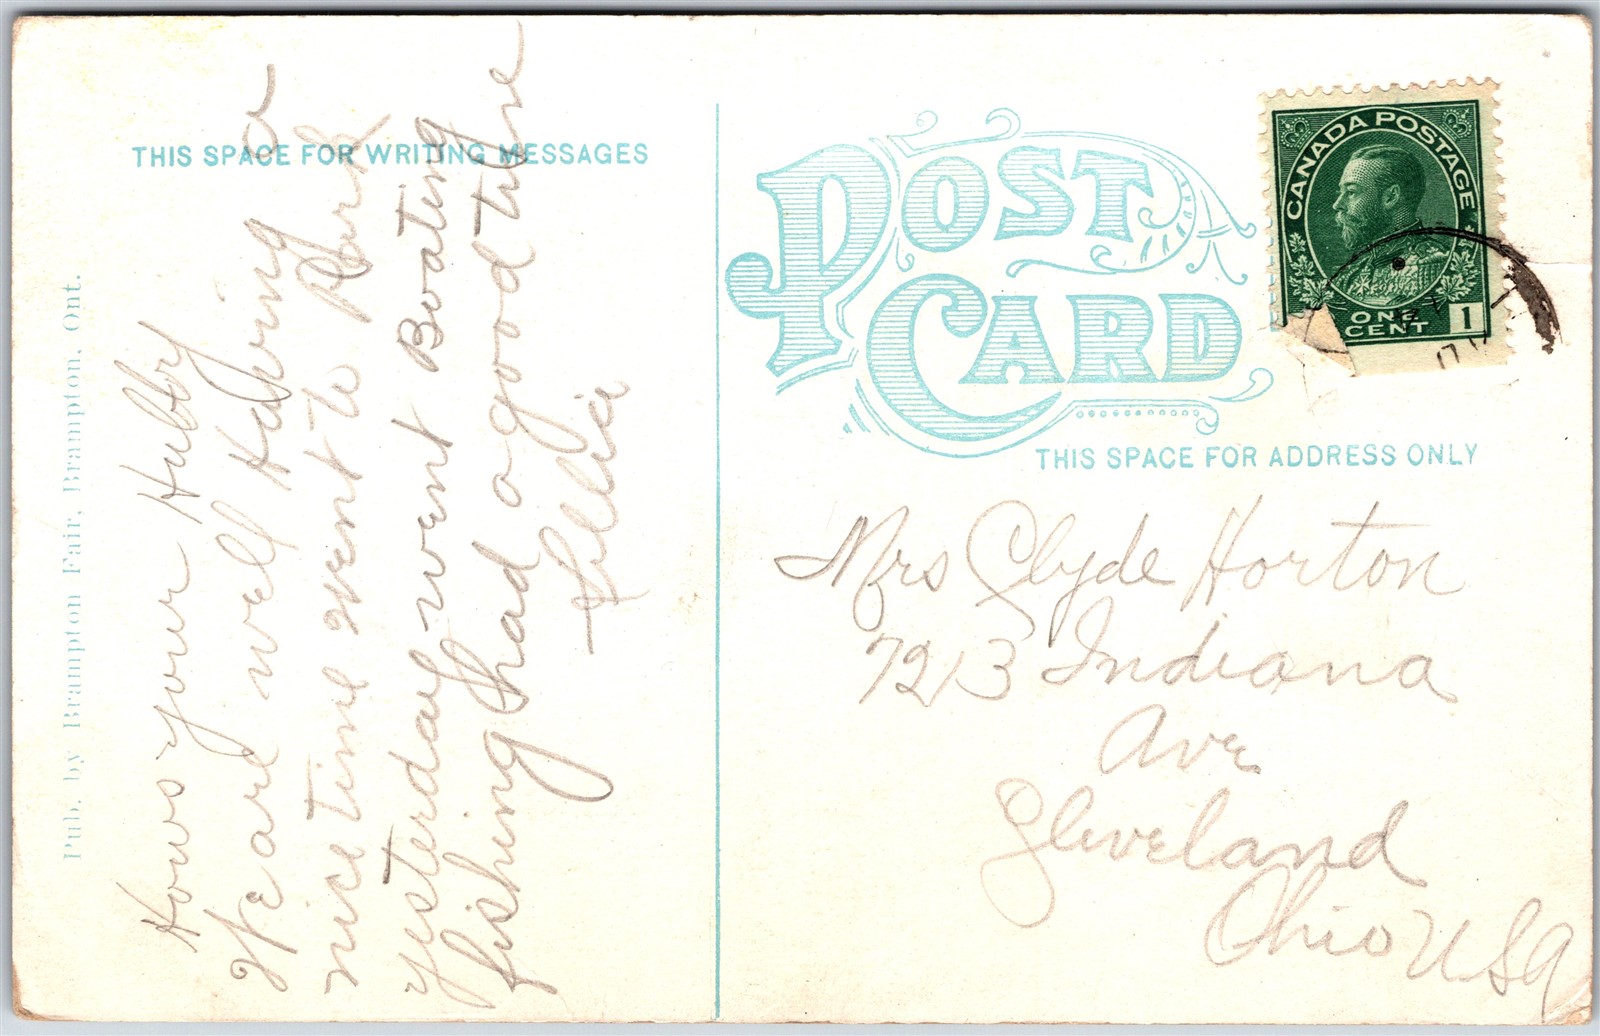 Pub. by Brampton Fair, Brampton, Ont.
THIS SPACE FOR WRITING MESSAGES
Hows your Hubby
We are well Having a
nice time went to Park
yesterday went Boating
fishing had a good time
Lillie
POST
CARD
CANADA POSTAGE
ONE
CENT 1
THIS SPACE FOR ADDRESS ONLY
Mrs Clyde Horton
7213 Indiana
Ave
Cleveland
Ohio USA